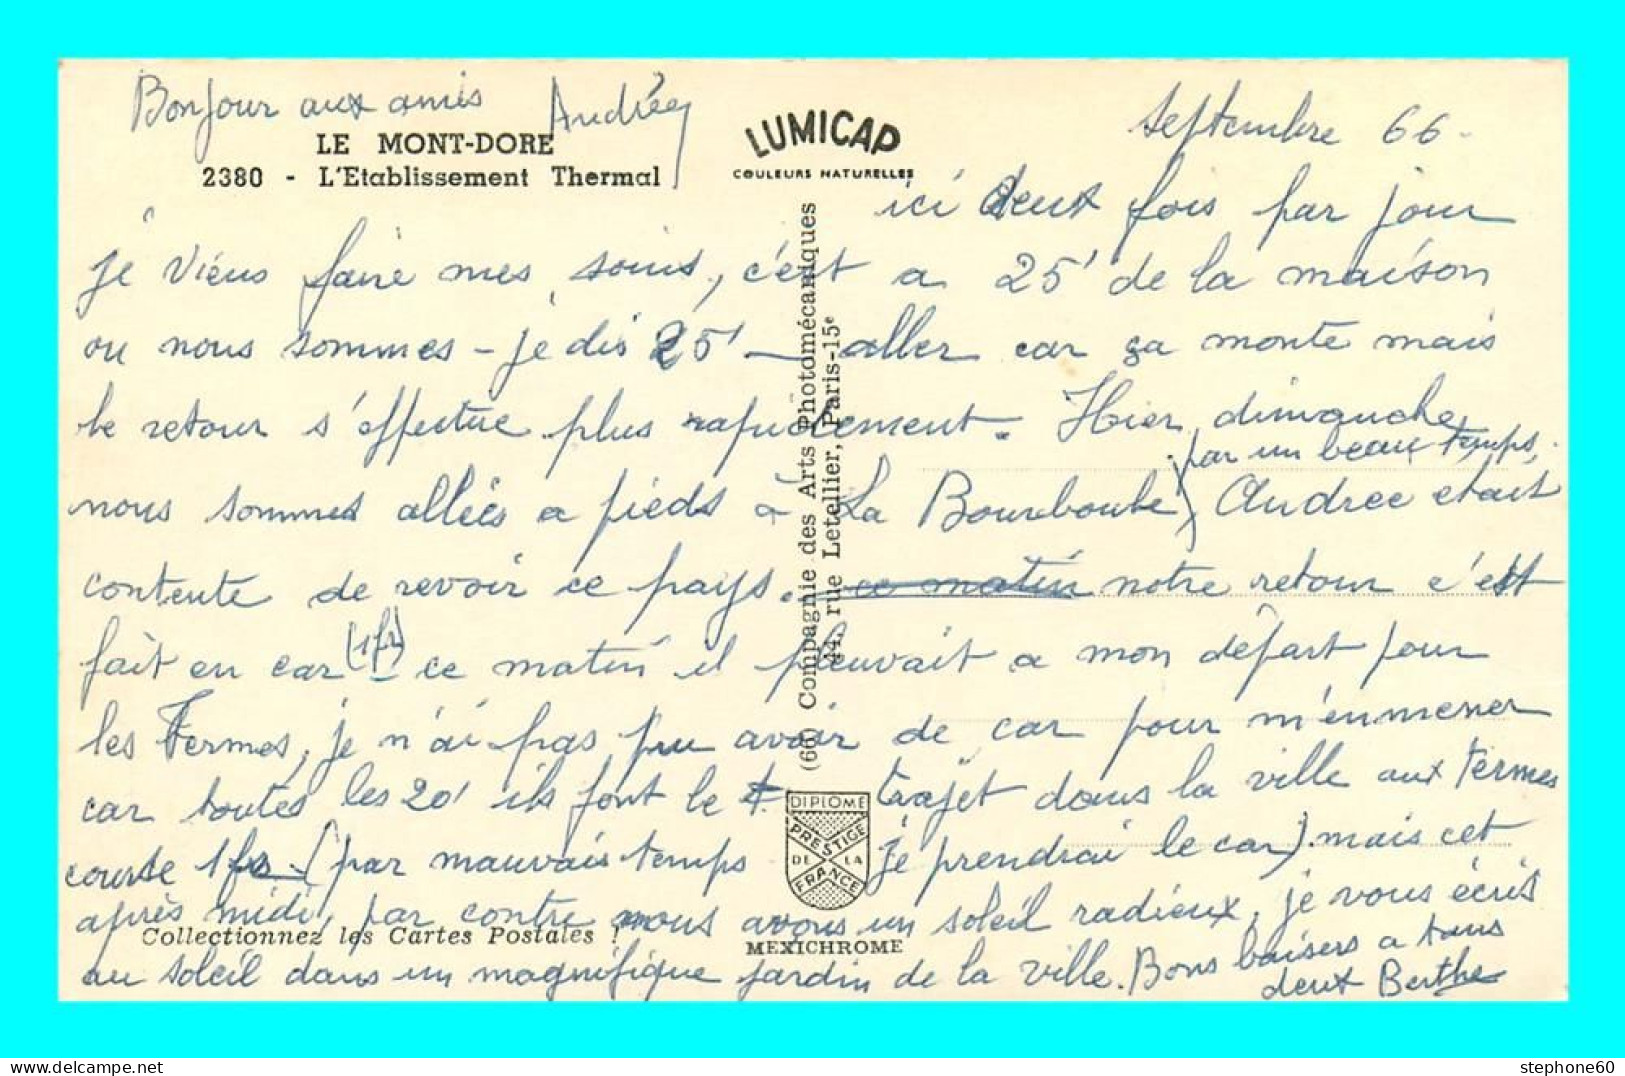 Bonjour aux amis Andrée
LE MONT-DORE
2380 - L'Etablissement Thermal
LUMICAP
COULEURS NATURELLES
septembre 66 -
ici deux fois par jour
je viens faire mes soins, c'est a 25' de la maison
ou nous sommes - je dis 25' - aller car ça monte mais
le retour s'effectue plus rapidement. Hier dimanche
par un beau temps,
nous sommes allées a pieds à La Bourboule) Andree etait
contente de revoir ce pays. ce matin notre retour c'est
fait en car (1fr) ce matin il pleuvait a mon départ pour
les Termes, je n'ai pas pu avoir de car pour m'enmener
car toutes les 20' ils font le t. trajet dans la ville aux termes
course 1fr (par mauvais temps je prendrai le car). mais cet
après midi, par contre nous avons un soleil radieux, je vous écris
au soleil dans un magnifique jardin de la ville. Bons baisers a tous
deux Berthe
(66) Compagnie des Arts Photomécaniques
44, rue Letellier, Paris-15e
DIPLOME
PRESTIGE
DE LA
FRANCE
Collectionnez les Cartes Postales !
MEXICHROME
stephone60